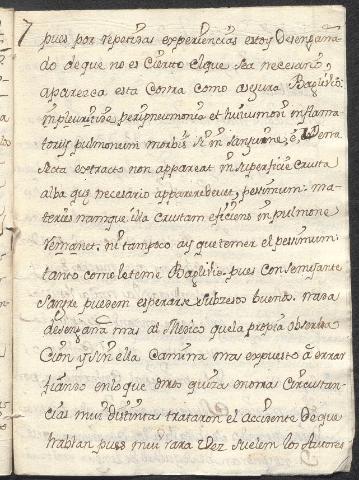 7
pues por repetidas experiencias estoy desengaña
do de que no es cierto el que sea necesario,
aparezca esta costra como asegura Baglibio:
in pleuritide peripneumonia et huiusmodi inflama
torijs pulmonum morbis si in sanguine è
secta extracto non appareat in superficie crusta
alba quę necesario apparere debuit, pessimum: ma
teries namque illa crustam eficiens in pulmone
remanet. ni tampoco ay que temer el pessimum
tanto como le teme Baglibio. pues con semejante
sangre pueden esperarse subzesos buenos. nada
desengaña mas al Medico que la propia obserba
cion y sin ella camina mas expuesto à errar
fiando en lo que otros quiza en otras circunstan
cias mui distintas trataron el accidente de que
hablan pues mui rara vez suelen los Autores